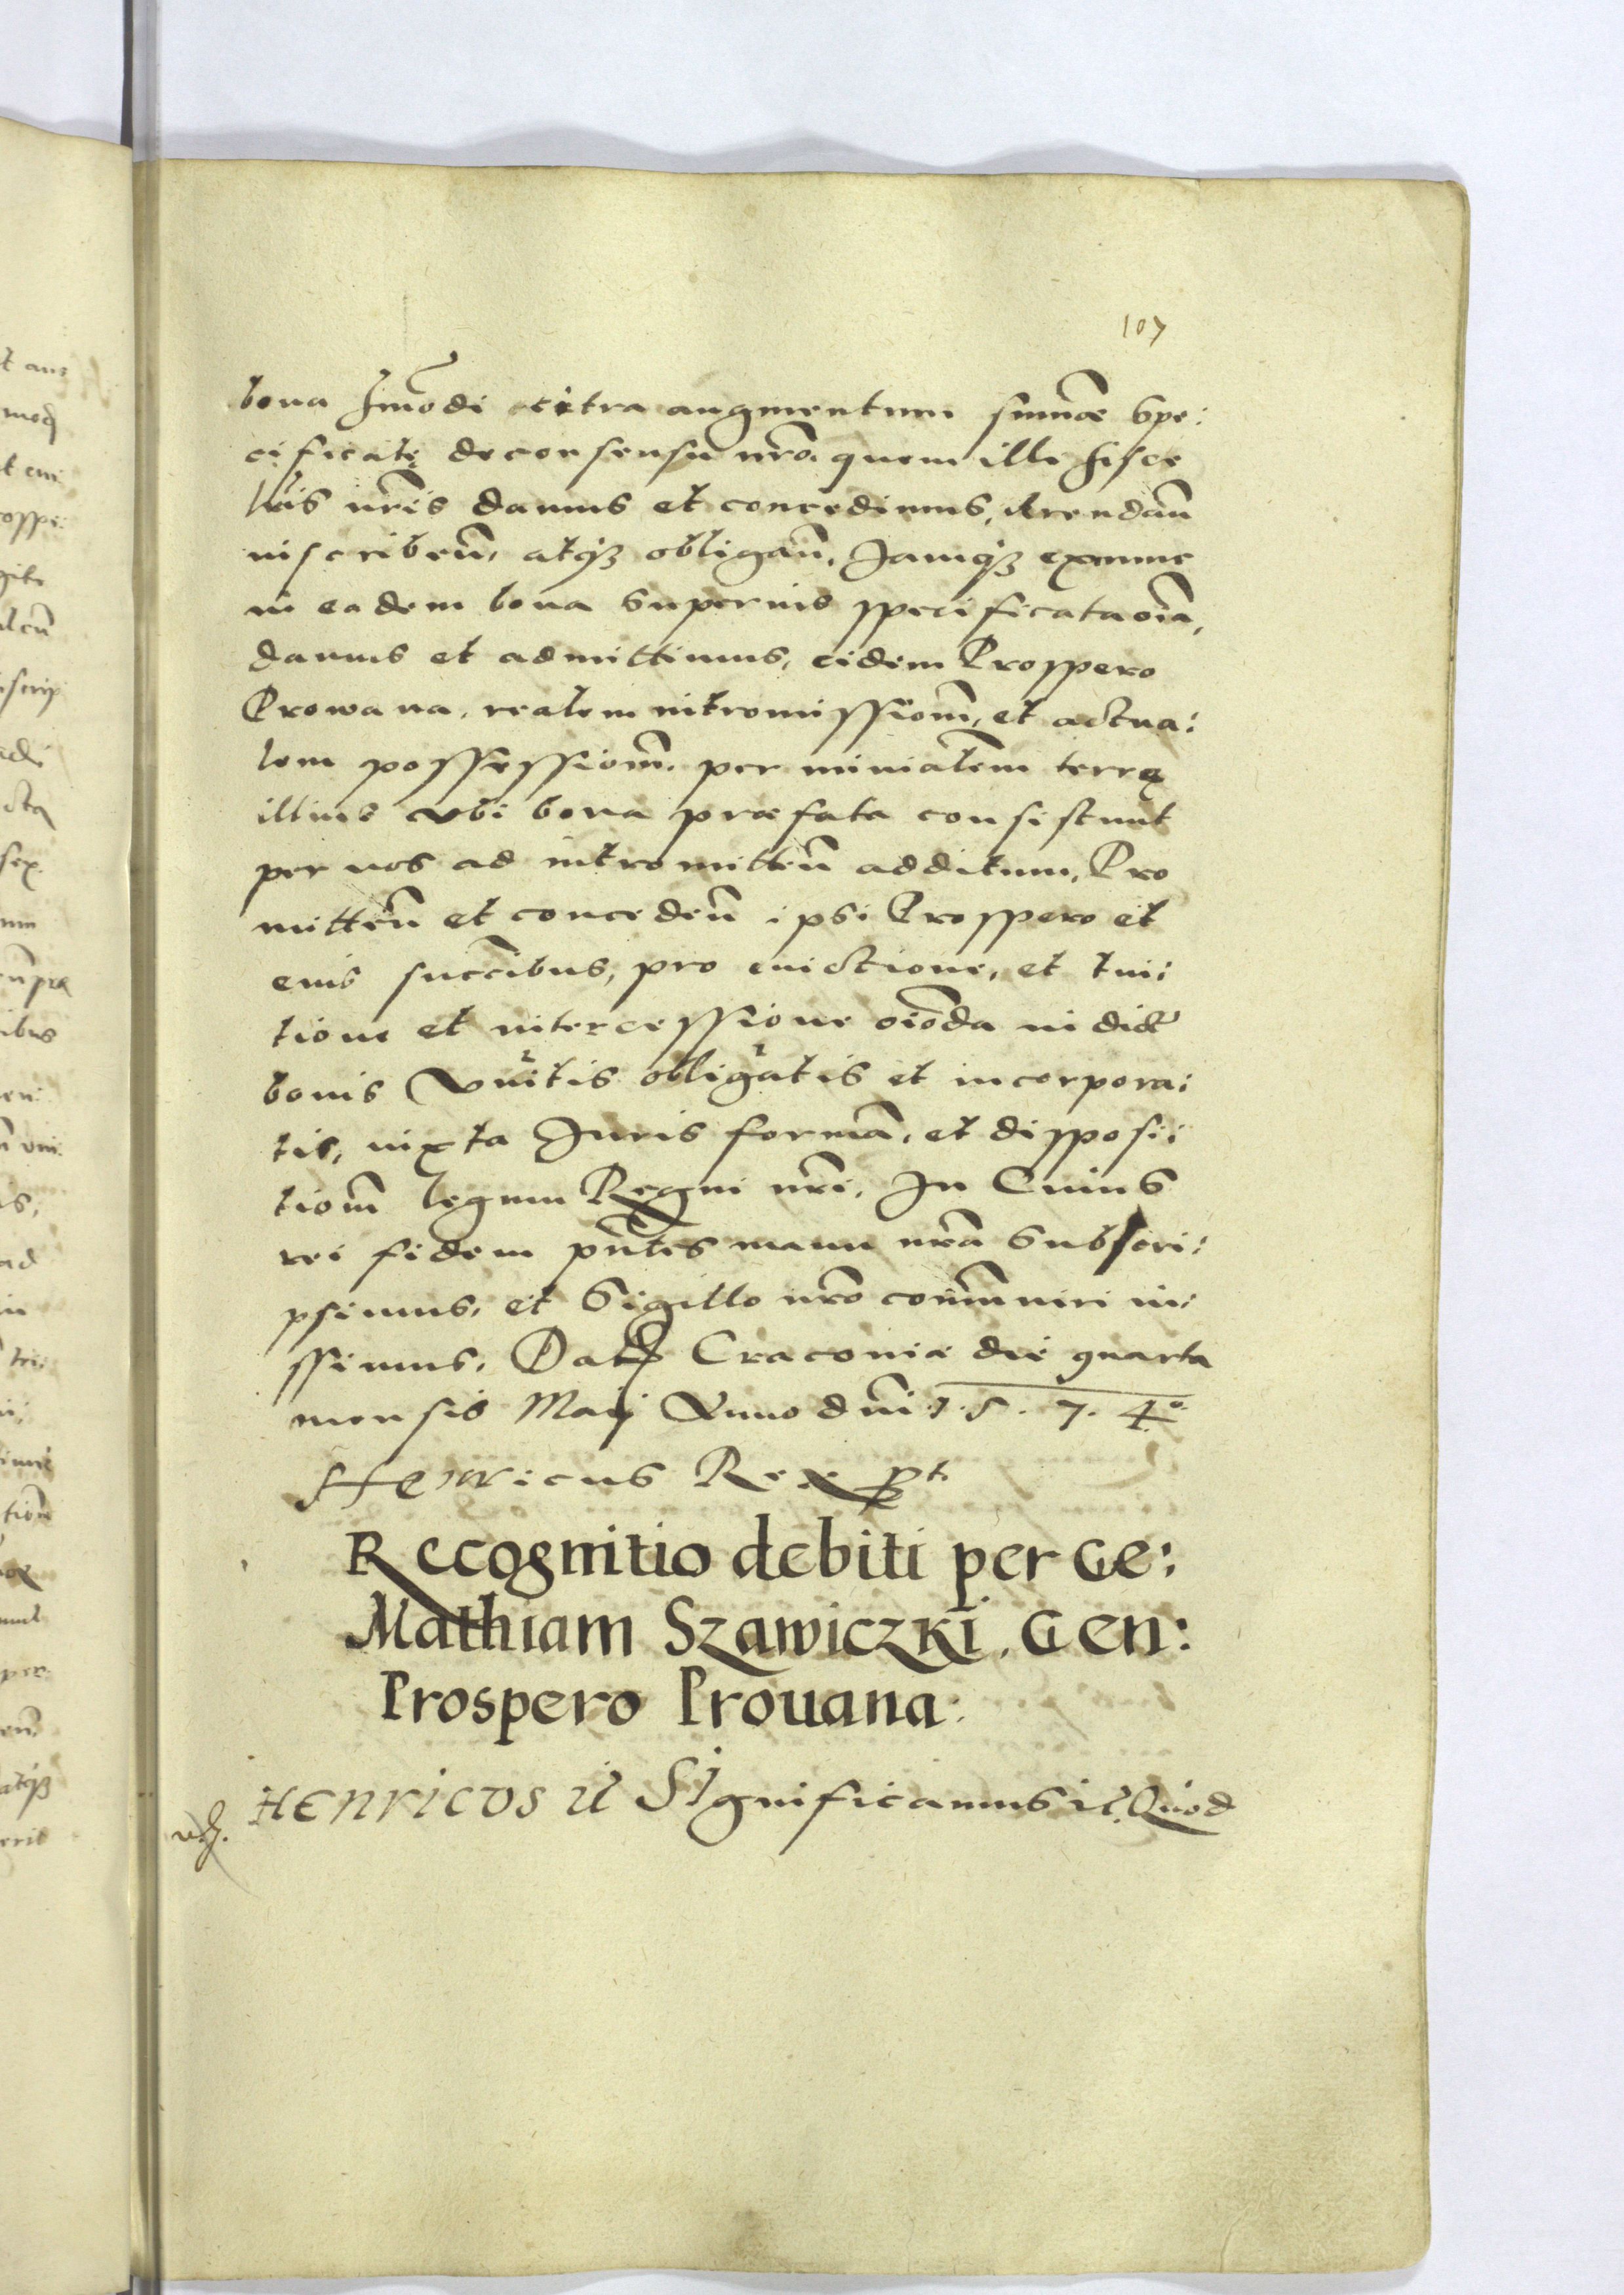 107
bona hmōdi citra augmentum summæ spe:
cificatę de consensu nrō. quem illi hisce
lrīs nrīs damus et concedimus, Arendan̄
inscriben̄, atqȝ obligan̄, Jamqȝ ex nunc
in eadem bona superius specificata oīa,
damus et admittimus, eidem Prospero
Prowana, realem intromissionm̄, et actua:
lem possessionm̄. per minīalem terrę
illius vbi bona præfata consistunt
per nos ad intromitten̄ additum, Pro
mitten̄ et conceden̄ ipsi Prospero et
eius succībus, pro euictione, et tui:
tione et intercessione oīmoda in dict
bonis Vnītis obligatis et incorpora:
tis, iuxta Juris formā, et disposi:
tionm̄ legum Regni nrī, In Cuius
rei fidem pn̄tes manu nrā subscri:
psimus, et Sigillo nrō com̄muniri iu:
ssimus, Dat Cracoviæ die quarta
mensis Maij Anno dnī 1.5.7.4º.
Henricus Rex pt.
Recognitio debiti per Ge:
Mathiam Szawiczki. Gen:
Prospero Prouana.
HENRICVS ił SIgnificamus ił. Quod